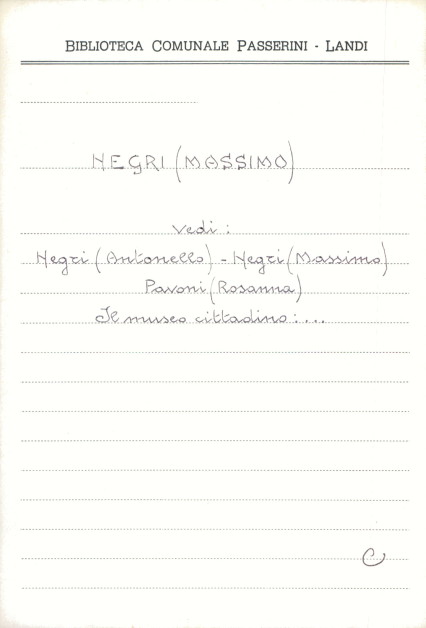 BIBLIOTECA COMUNALE PASSERINI - LANDI
NEGRI (MASSIMO)
Vedi :
Negri (Antonello) - Negri (Massimo)
Pavoni (Rosanna)
Il museo cittadino : ...
C